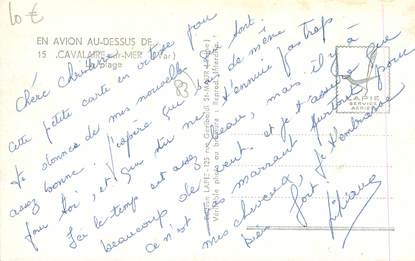 10 €
EN AVION AU-DESSUS DE
15 .CAVALAIRE-sur-MER (Var)
La plage
Chère Christiane
cette petite carte en vitesse pour
te donner de mes nouvelles qui sont
assez bonne. J'espère qu'il en est de même
pour toi, et que tu ne t'ennuie pas trop
Ici le temps est assez beau, mais il y a
beaucoup de vent. et je t'assure que
ce n'est pas marrant surtout pour
mes cheveux, je t'embrasse
bien fort.
Liliane
83
Edition LAPIE-125 rue Garibaldi St-MAUR (Seine)
Véritable photo au bromure : Reprod. Interdite
LAPIE
SERVICE
AERIEN